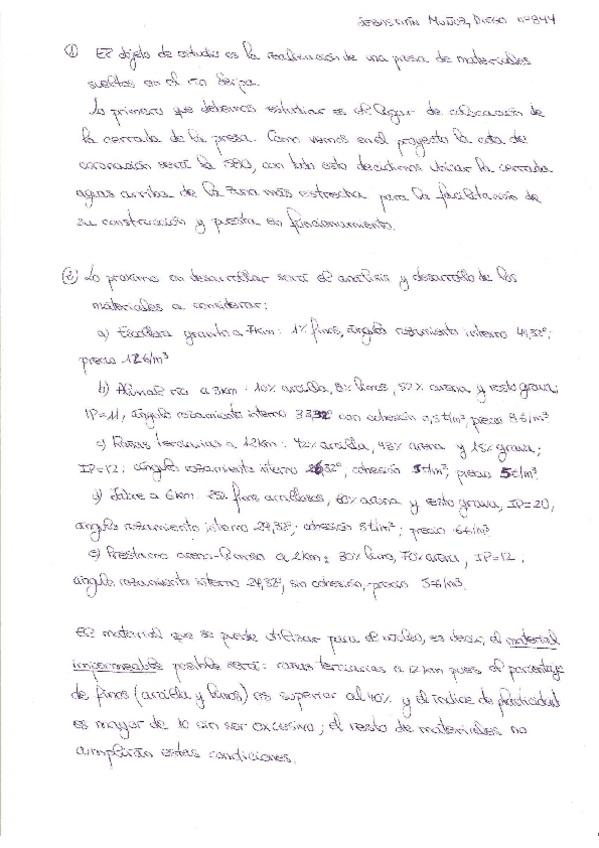 SEBASTIÁN MUÑOZ, DIEGO nº844
① El objeto de estudio es la realización de una presa de materiales
sueltos en el río Serpa.
Lo primero que debemos estudiar es el lugar de colocación de
la cerrada de la presa. Como vemos en el proyecto la cota de
coronación será la 580, con todo esto decidimos ubicar la cerrada
aguas arriba de la zona más estrecha para la facilitación de
su construcción y puesta en funcionamiento.
② Lo proximo en desarrollar será el analisis y desarrollo de los
materiales a considerar:
a) Escollera granito a 7km: 1% finos, ángulo rozamiento interno 41,32º;
precio 12€/m³
b) Aluvial río a 3km: 10% arcilla, 8% limos, 57% arena y resto grava;
IP=11, ángulo rozamiento interno 33,32º con cohesión 0,5t/m², precio 8€/m³
c) Rañas terciarias a 12km: 42% arcilla, 43% arena y 15% grava;
IP=12; ángulo rozamiento interno 26,32º, cohesión 5t/m²; precio 5€/m³.
d) Jabre a 6km: 25% finos arcillosos, 60% arena y resto grava, IP=20,
ángulo rozamiento interno 29,32º; cohesión 5t/m²; precio 6€/m³
e) Prestamo areno-limoso a 2km: 30% limo, 70% arena, IP=12;
ángulo rozamiento interno 24,32º, sin cohesión, precio 5€/m³.
El material que se puede utilizar para el núcleo, es decir, el material
impermeable posible será: rañas terciarias a 12km pues el porcentaje
de finos (arcilla y limos) es superior al 40% y el índice de plasticidad
es mayor de 10 sin ser excesivo; el resto de materiales no
cumplirán estas condiciones.